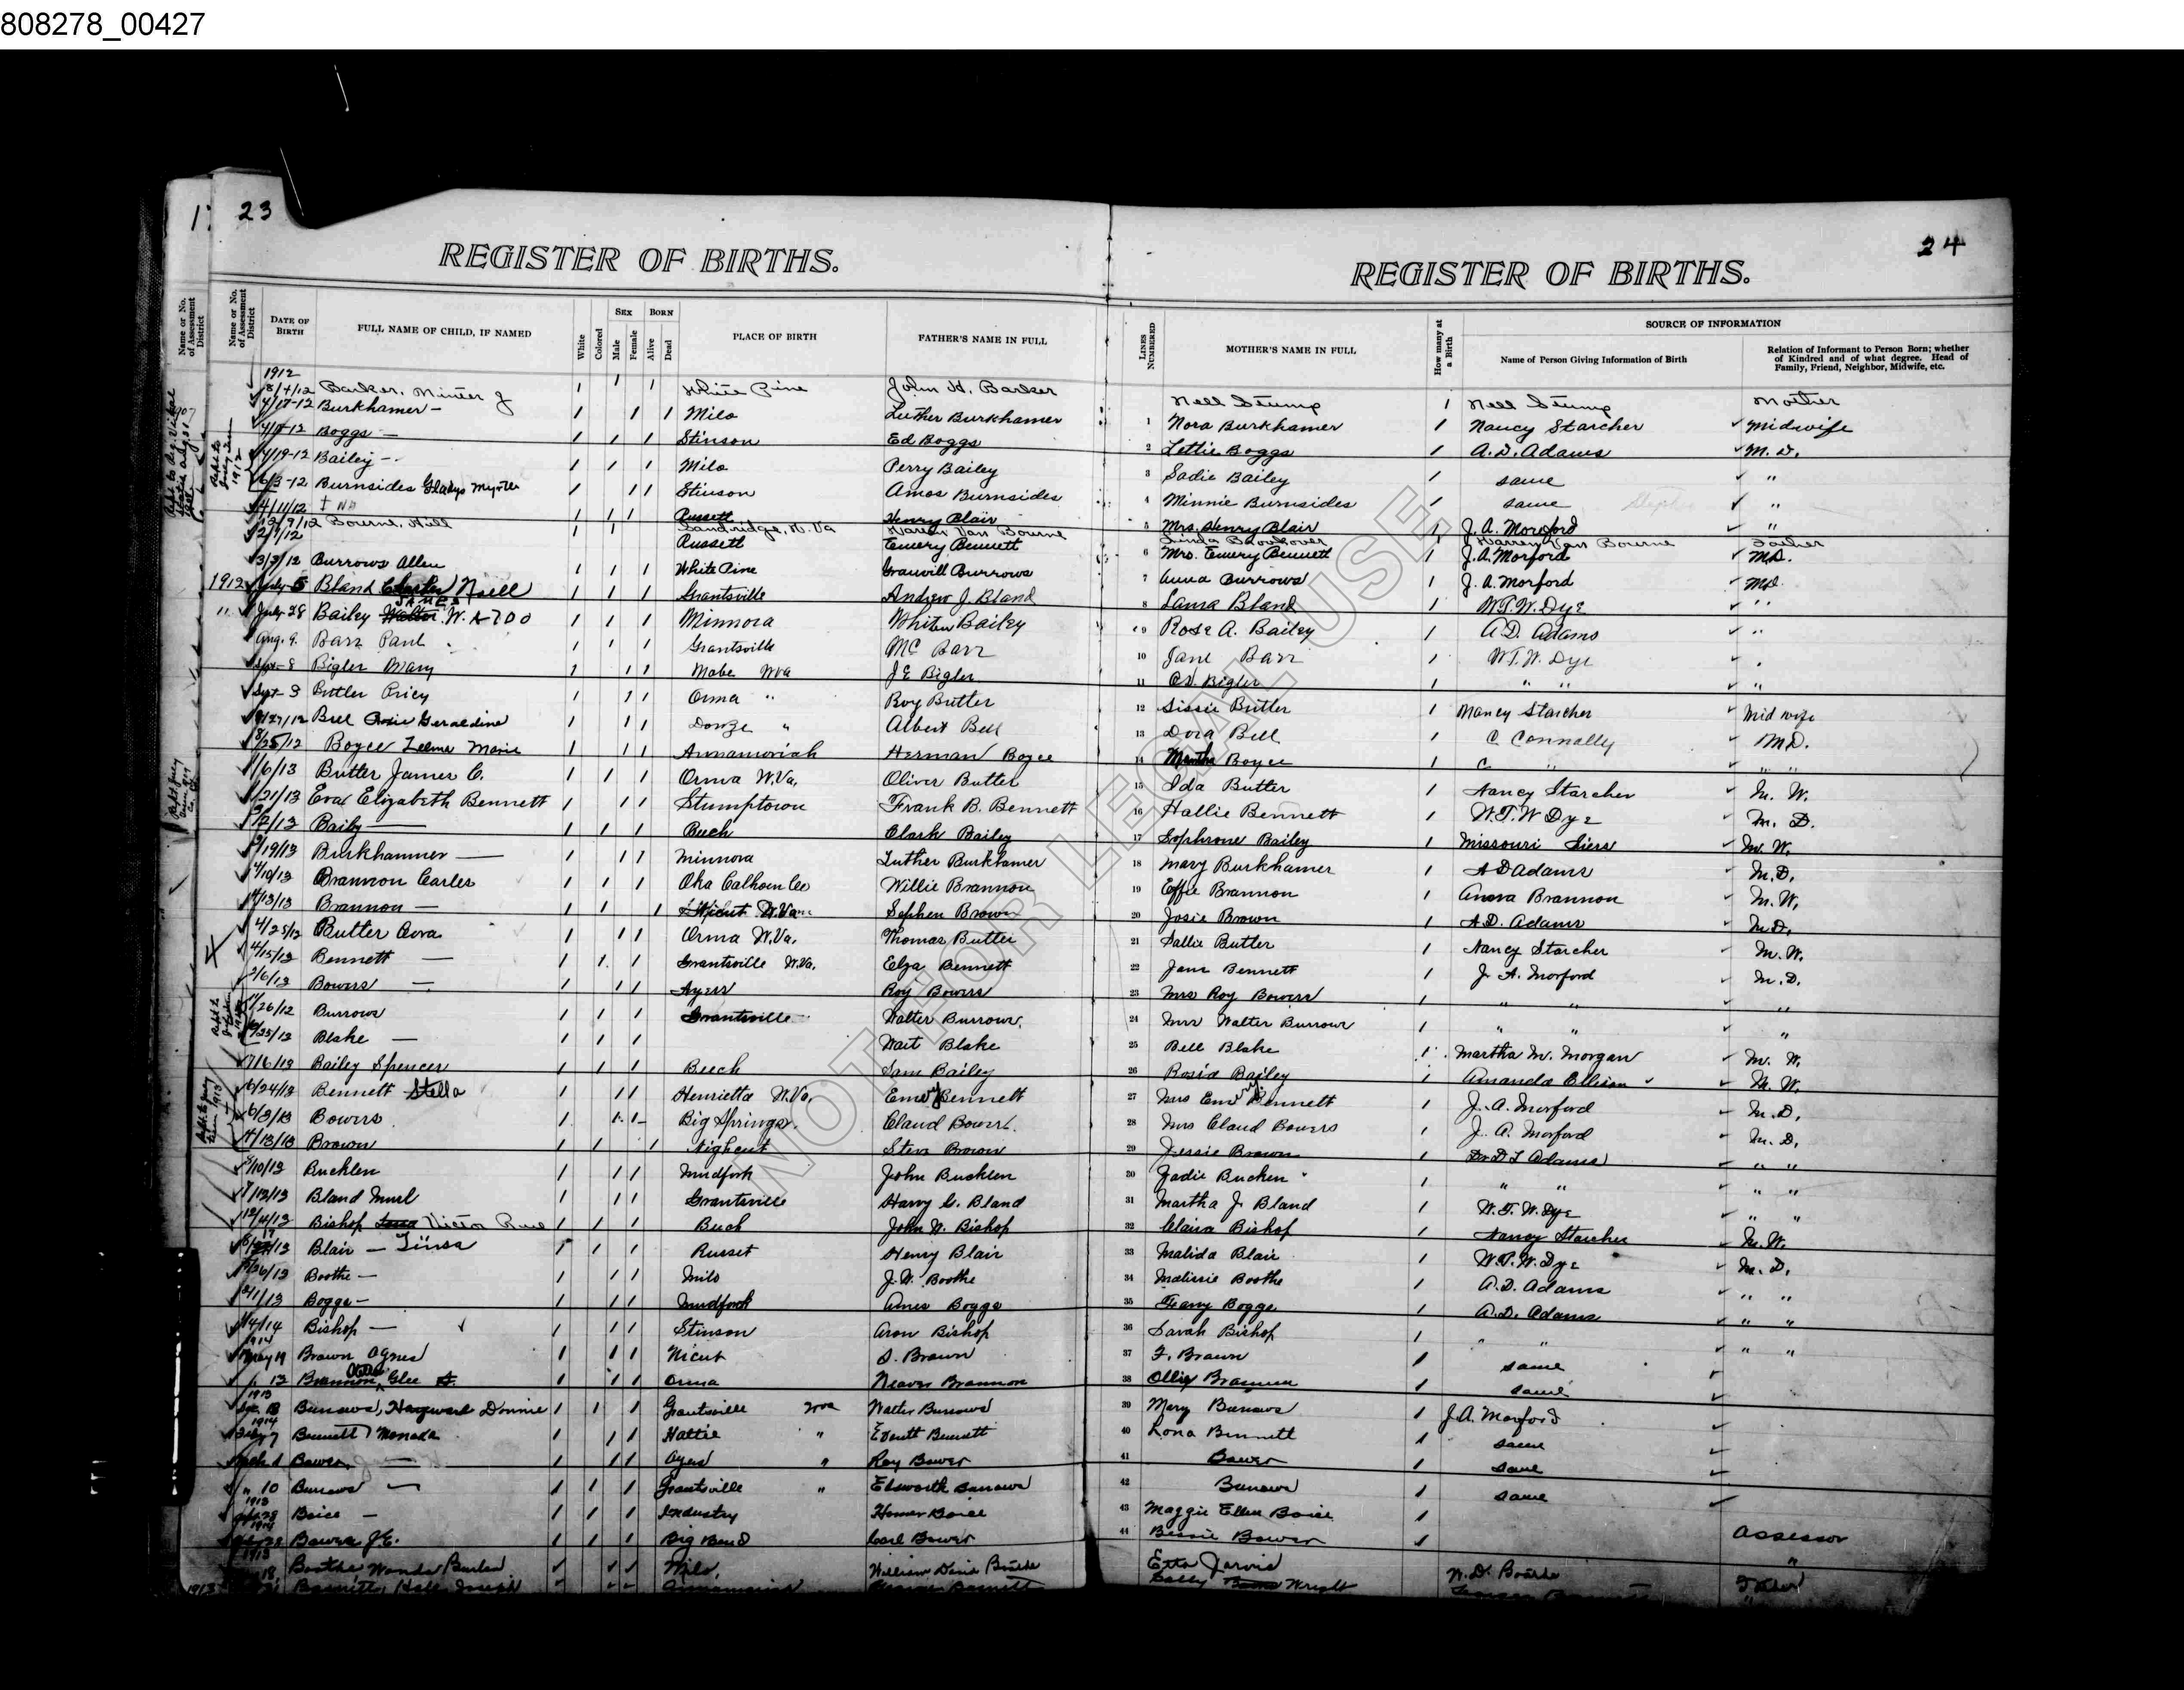 808278_00427
23
24
REGISTER OF BIRTHS.
REGISTER OF BIRTHS.
Name or No. of Assessment District
Name or No. of Assessment District DATE OF BIRTH FULL NAME OF CHILD, IF NAMED White Colored SEX Male Female BORN Alive Dead PLACE OF BIRTH FATHER'S NAME IN FULL LINES NUMBERED MOTHER'S NAME IN FULL How many at a Birth SOURCE OF INFORMATION Name of Person Giving Information of Birth Relation of Informant to Person Born; whether of Kindred and of what degree. Head of Family, Friend, Neighbor, Midwife, etc.
1912
8/4/12 Barker, Minter J 1 1 1 White Pine John H. Barker Nell Stump 1 Nell Stump Mother
4/17-12 Burkhamer - 1 1 1 Milo Luther Burkhamer 1 Nora Burkhamer 1 Nancy Starcher Midwife
Boggs - 1 1 1 Stinson Ed Boggs 2 Lettie Boggs 1 A.D. Adams M.D.
4/19-12 Bailey - 1 1 1 Milo Perry Bailey 3 Sadie Bailey 1 same "
6/3-12 Burnsides Gladys Myrtle 1 1 1 Stinson Amos Burnsides 4 Minnie Burnsides 1 same "
4/11/12 1 1 1 Russett Henry Blair 5 Mrs. Henry Blair 1 J. A. Morford "
12/9/12 Bourne, Hill Sandridge, W. Va Warren Van Bourne Linda Brookover 1 Warren Van Bourne Father
2/9/12 Russett Emery Bennett 6 Mrs. Emery Bennett 1 J.A. Morford M.D.
3/3/12 Burrows Allen 1 1 1 White Pine Granvill Burrows 7 Anna Burrows 1 J. A. Morford M.D.
1912 July 5 Bland Noell 1 1 1 Grantsville Andrew J. Bland 8 Lama Bland 1 W.T.W. Dye "
" July 28 Bailey W. 1 1 1 Minnora Whiten Bailey 9 Rose A. Bailey 1 A.D. Adams "
Aug. 9. Barr Paul 1 1 1 Grantsville Mc Barr 10 Jane Barr 1 W.T.W. Dye "
Sept-8 Bigler Mary 1 1 1 Mabe Wva J E Bigler 11 Bigler 1 " " "
Sept 3 Butler Pricy 1 1 1 Orma " Roy Butler 12 Sissie Butler 1 Nancy Starcher Mid wife
9/27/12 Bell Geraldine 1 1 1 " Albert Bell 13 Dora Bell 1 C Connally M.D.
8/25/12 Boyce Zelma Marie 1 1 1 Annamoriah Herman Boyce 14 Boyce 1 C " " "
1/6/13 Butler James C. 1 1 1 Orma W.Va. Oliver Butler 15 Ida Butler 1 Nancy Starcher M. W.
1/21/13 Eva Elizabeth Bennett 1 1 1 Stumptown Frank B. Bennett 16 Hallie Bennett 1 W.T.W Dye M. D.
Baily 1 1 1 Beech Clark Bailey 17 Sophrone Bailey 1 Missouri Siers M. W.
2/19/13 Burkhammer 1 1 1 Minnora Luther Burkhamer 18 Mary Burkhamer 1 A D Adams M.D.
4/10/13 Brannon Carles 1 1 1 Oka Calhoun Co Willie Brannon 19 Effie Brannon 1 Anora Brannon M.W.
4/13/13 Brannon - 1 1 1 W.Va. Sephen Brown 20 Josie Brown 1 A.D. Adams M.D.
Butler Ova 1 1 1 Orma W.Va. Thomas Butler 21 Sallie Butler 1 Nancy Starcher M.W.
4/15/13 Bennett - 1 1 1 Grantsville W.Va. Elza Bennett 22 Jane Bennett 1 J. A. Morford M.D.
2/6/13 Bowers - 1 1 1 Ayers Roy Bowers 23 Mrs Roy Bowers 1 " " "
Burrows 1 1 1 Grantsville Walter Burrows 24 Mrs Walter Burrows 1 " " "
Blake - 1 1 1 Wait Blake 25 Bell Blake 1 Martha M. Morgan M. W.
Bailey Spencer 1 1 1 Beech Sam Bailey 26 Rosia Bailey 1 Amanda Ellison M.W.
6/24/13 Bennett Stella 1 1 1 Henrietta W.Va. Emry Bennett 27 Mrs Emry Bennett J. A. Morford M.D.
6/3/13 Bowers 1 1 1 Big Springs Claud Bowers 28 Mrs Claud Bowers J. A. Morford M. D.
4/13/13 Brown 1 1 1 Nighcut Steve Brown 29 Jessie Brown 1 Dr. D T Adams " "
Bucklen 1 1 1 Mudfork John Bucklen 30 Zadie Bucken 1 " " " "
Bland Murl 1 1 1 Grantsville Harvy G. Bland 31 Martha J. Bland 1 W.T.W. Dye " "
Bishop Victor 1 1 1 Beech John W. Bishop 32 Claira Bishop 1 Nancy Starcher M.W.
Blair - 1 1 1 Russet Henry Blair 33 Malida Blair 1 W.T.W. Dye M.D.
Boothe - 1 1 1 Milo J.W. Boothe 34 Malissie Boothe 1 A.D. Adams " "
Boggs - 1 1 1 Mudfork Ames Boggs 35 Boggs 1 A.D. Adams " "
Bishop - 1 1 1 Stinson Aron Bishop 36 Sarah Bishop 1 " " " "
1914
May 19 Brown Agnes 1 1 1 Nicut S. Brown 37 F. Brown 1 same
" 13 Brannon, Glee 1 1 1 Orma Brannon 38 Ollie Brannon 1 same
1913
Burrows, Donnie 1 1 1 Grantsville Wva Walter Burrows 39 Mary Burrows 1 J.A. Morford
1914
Bennett Moneda 1 1 1 Hattie " Everett Bennett 40 Lona Bennett 1 same
Bower - 1 1 1 Ayers " Roy Bower 41 Bower 1 same
" 10 Burrows - 1 1 1 Grantsville " Elsworth Burrows 42 Burrows 1 same
1913
Boice - 1 1 1 Industry Homer Boice 43 Maggie Ellen Boice 1
1914
Bower J.E. 1 1 1 Big Bend Carl Bower 44 Bessie Bower 1 Assessor
1913
18 Boothe Wanda Milo William David Boothe Etta Jarvis W.D. Boothe "
1913 Joseph Wright Father